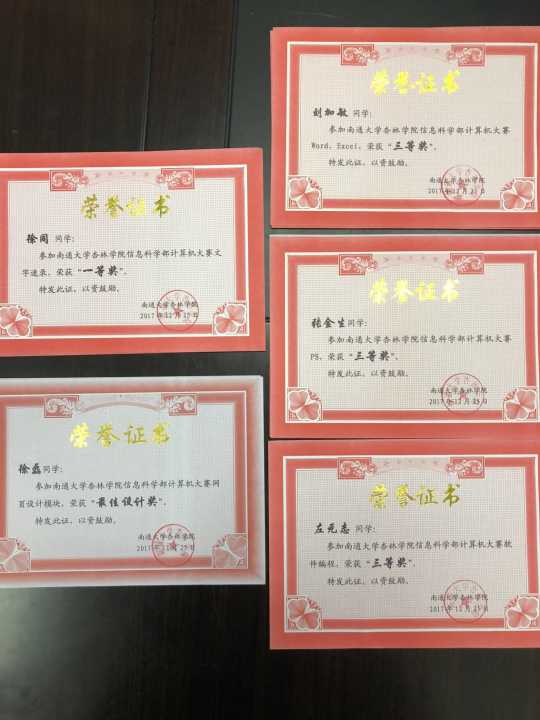 荣誉证书
徐同 同学：
参加南通大学杏林学院信息科学部计算机大赛文
字速录，荣获“一等奖”。
特发此证，以资鼓励。
南通大学杏林学院
2017年12月25日
荣誉证书
徐磊同学：
参加南通大学杏林学院信息科学部计算机大赛网
页设计模块，荣获“最佳设计奖”。
特发此证，以资鼓励。
南通大学杏林学院
2017年12月25日
荣誉证书
刘加敏 同学：
参加南通大学杏林学院信息科学部计算机大赛
Word、Excel，荣获“三等奖”。
特发此证，以资鼓励。
南通大学杏林学院
2017年12月25日
荣誉证书
张金生同学：
参加南通大学杏林学院信息科学部计算机大赛
PS，荣获“三等奖”。
特发此证，以资鼓励。
南通大学杏林学院
2017年12月25日
荣誉证书
左元志 同学：
参加南通大学杏林学院信息科学部计算机大赛软
件编程，荣获“三等奖”。
特发此证，以资鼓励。
南通大学杏林学院
2017年12月25日